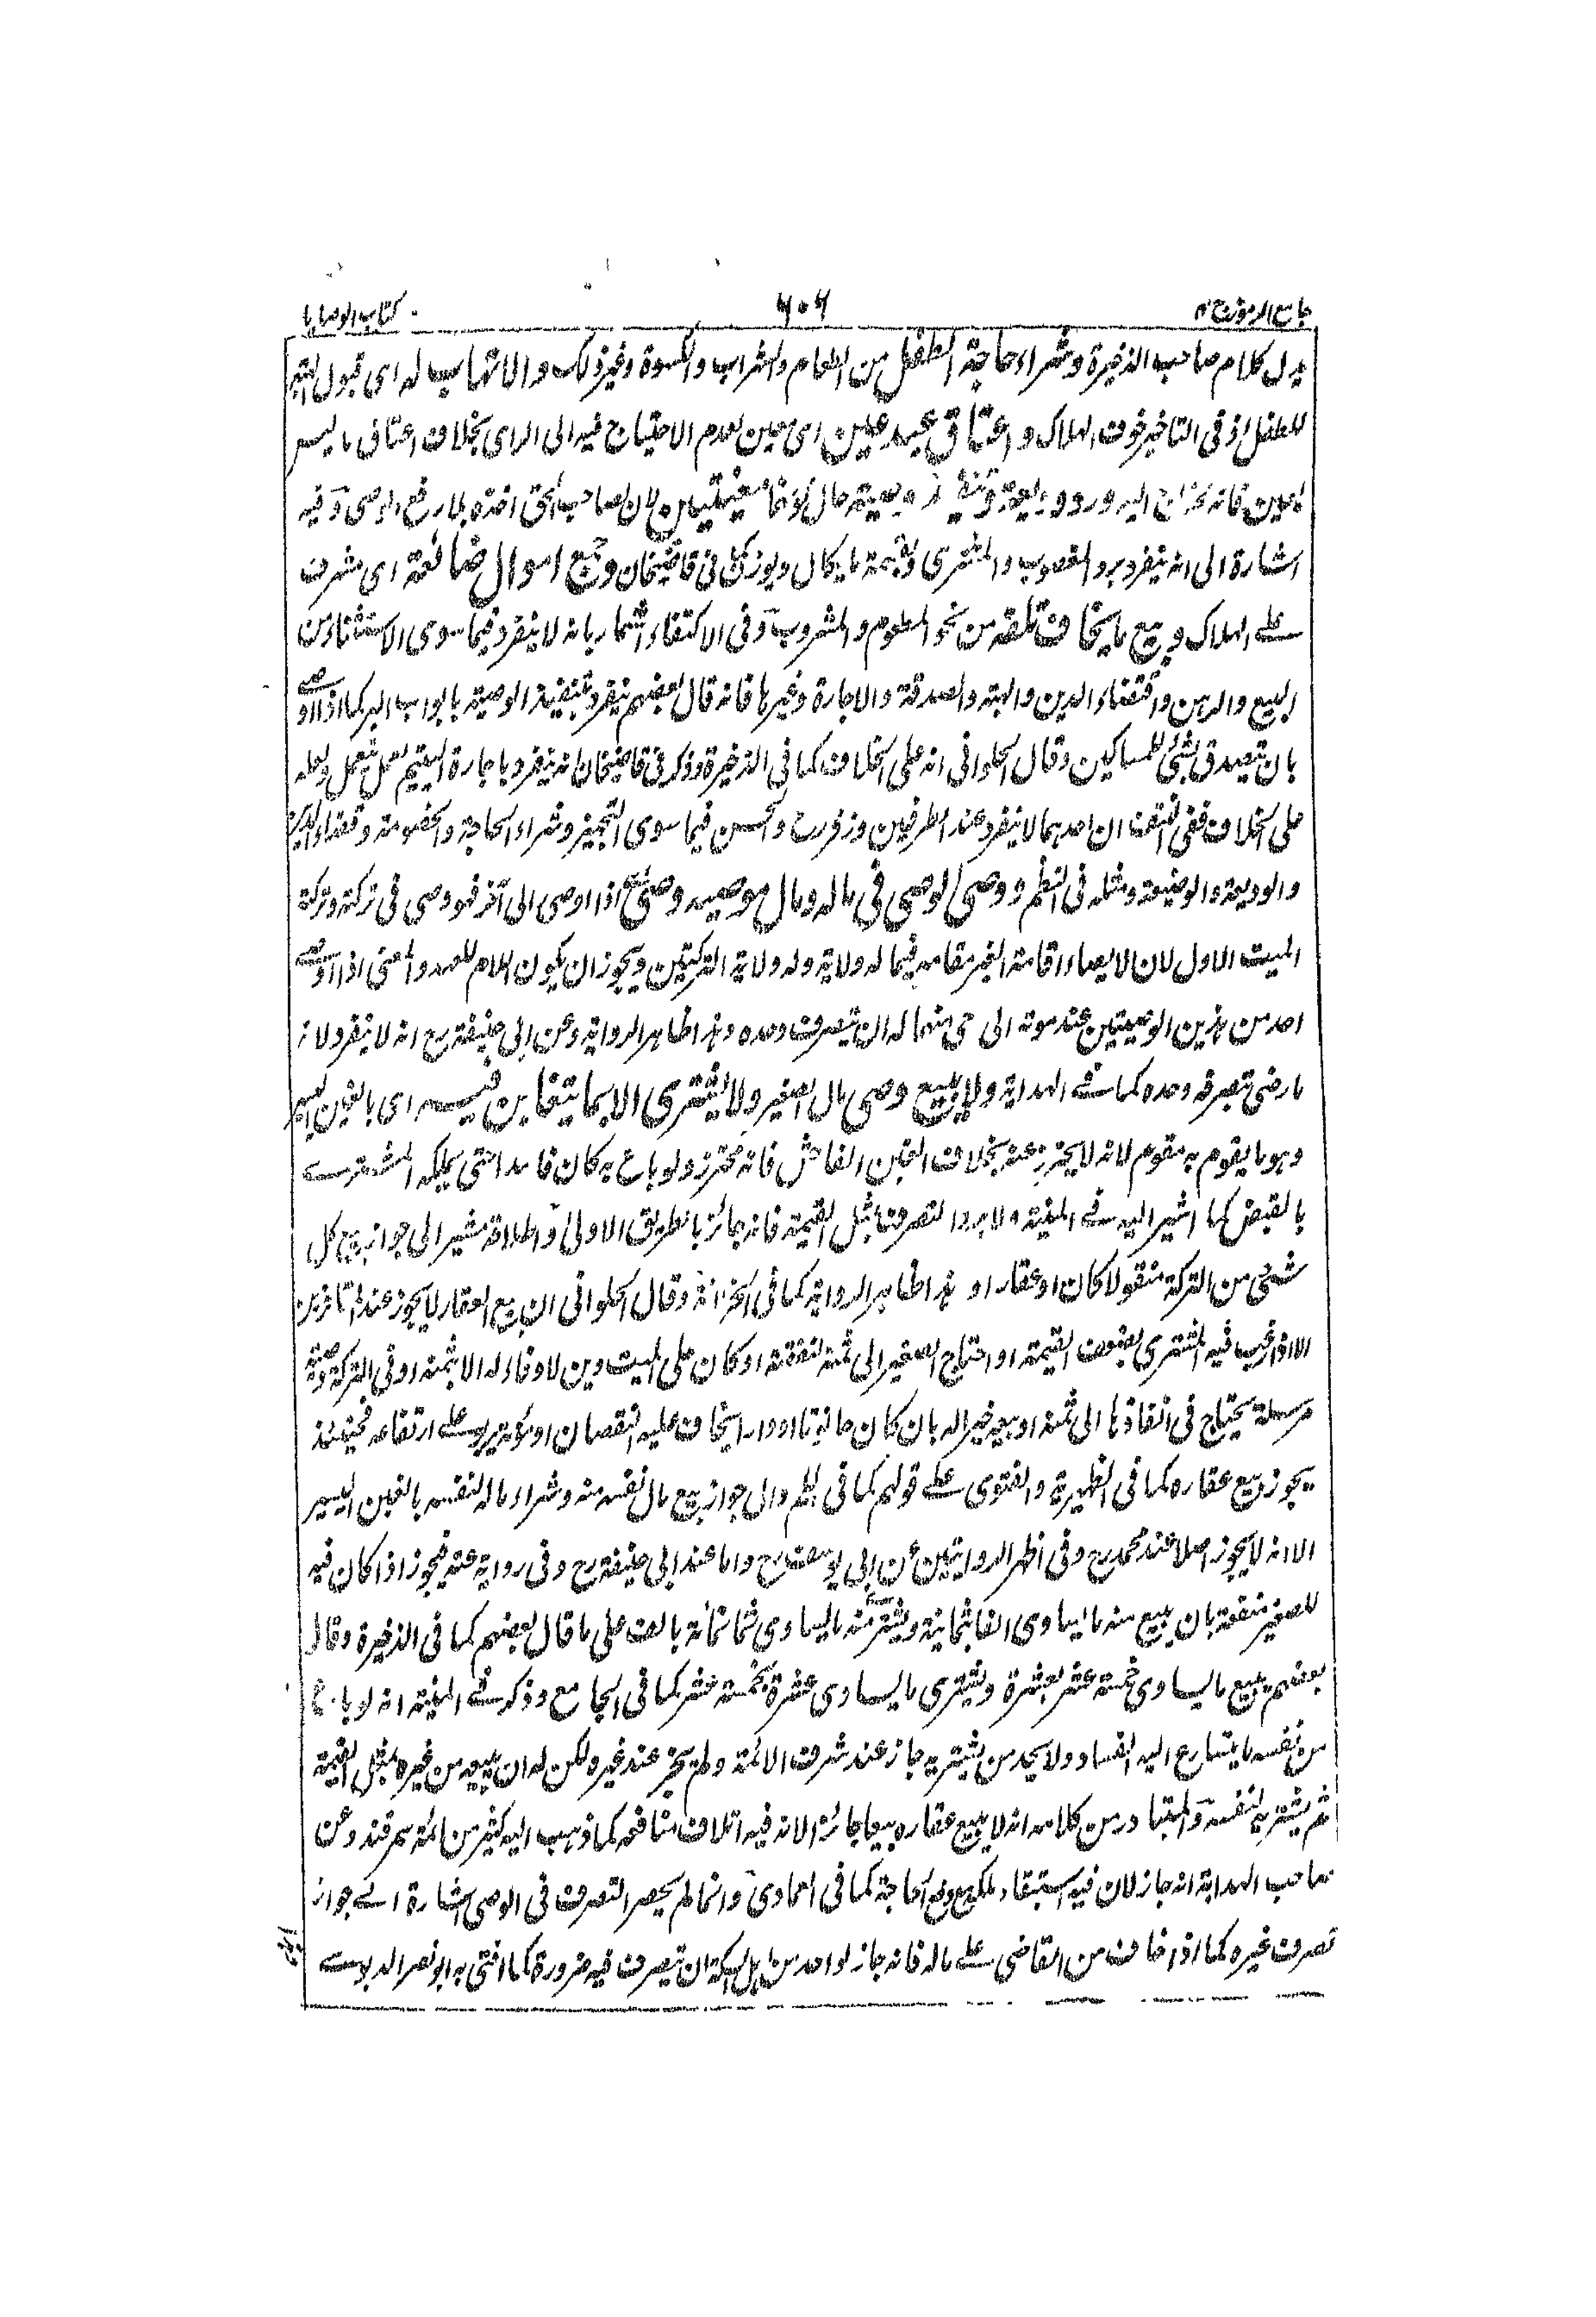 جامع الرموز ج ٢
٦٠٦
كتاب الوصايا
يدل كلام صاحب الذخيرة وشراء حاجة الطفل من الطعام والشراب والكسوة وغير ذلك والاتهاب له اى قبول الهبة
للطفل اذ فى التاخير خوف الهلاك واعتاق عبد عين اى معين لعدم الاحتياج فيه الى الراى بخلاف اعتاق ما ليس
بمعين فانه محتاج اليه ورد وديعة وتنفيذ وصية حال كونهما معينتين لان لصاحب الحق اخذه بلا رفع الوصى وفيه
اشارة الى انه ينفرد برد المغصوب والمشترى وقسمة ما يكال ويوزن كما فى قاضيخان وجمع اموال ضائعة اى مشرف
على الهلاك وبيع ما يخاف تلفه من نحو المطعوم والمشروب وفى الاكتفاء اشعار بانه لا ينفرد فيما سوى الاستثناء من
البيع والرهن واقتضاء الدين والهبة والصدقة والاجارة وغيرها فانه قال بعضهم ينفرد بتنفيذ الوصية بابواب البر كما اذا اوصى
بان يتصدق بشئ للمساكين وقال الحلوانى انه على الخلاف كما فى الذخيرة وذكر فى قاضيخان انه ينفرد باجارة اليتيم لعمل يعمل ولعله
على الخلاف ففى النتف ان احدهما لا ينفرد عند الطرفين وزفر رح والحسن فيما سوى التجهيز وشراء الحاجة والخصومة وقضاء الدين
والوديعة والوضيعة ومثله فى النظم ووصى الوصى فى ماله ومال موصيه وصى اذا اوصى الى آخر فهو وصى فى تركته وتركة
الميت الاول لان الايصاء اقامة الغير مقامه فيما له ولاية وله ولاية التركتين ويجوز ان يكون اللام للعهد والمعنى اذا اوصى
احد من هذين الوصيتين عند موته الى حى منهما له ان يتصرف وحده وهذا ظاهر الرواية وعن ابى حنيفة رح انه لا ينفرد لانه
ما رضى بتصرفه وحده كما فى الهداية ولا يبيع وصى مال الصغير ولا يشترى الا بما يتغابن فيه اى بالغبن اليسير
وهو ما يقوم به مقوم لانه لا يحترز عنه بخلاف الغبن الفاحش فانه محترز ولو باع به كان فاسدا حتى يملكه المشترى
بالقبض كما اشير اليه فى المنية ولا يرد التصرف بمثل القيمة فانه جائز بالطريق الاولى واطلاقه مشير الى جواز بيع كل
شئ من التركة منقولا كان او عقارا وهذا ظاهر الرواية كما فى الخزانة وقال الحلوانى ان بيع العقار لا يجوز عند المتاخرين
الا اذا رغب فيه المشترى بضعف القيمة او احتاج الصغير الى ثمنه لنفقته او كان على الميت دين لا وفاء له الا بثمنه او فى التركة وصية
مرسلة يحتاج فى انفاذها الى ثمنه او بيعه خير اله بان كان حانوتا او دارا يخاف عليه النقصان او مؤنة يربو على ارتفاعه فحينئذ
يجوز بيع عقاره كما فى الظهيرية والفتوى على قولهم كما فى والى جواز بيع مال نفسه منه وشراء ماله لنفسه بالغبن اليسير
الا انه لا يجوز اصلا عند محمد رح وفى اظهر الروايتين عن ابى يوسف رح واما عند ابى حنيفة رح وفى رواية عنه فيجوز اذا كان فيه
للصغير منفعة بان يبيع منه ما يساوى الفا بثمانمائة ويشترى منه ما يساوى ثمانمائة بالف على ما قال بعضهم كما فى الذخيرة وقال
بعضهم يبيع ما يساوى خمسة عشر بعشرة ويشترى ما يساوى عشرة بخمسة عشر كما فى الجامع وذكر فى المنية انه لو باع
من نفسه ما يتسارع اليه الفساد ولا يجد من يشتريه جاز عند شرف الائمة ولم يجز عند غيره ولكن له ان يبيعه من غيره بمثل القيمة
ثم يشتريه لنفسه والمتبادر من كلامه انه لا يبيع عقاره بيعا جائزا لانه فيه اتلاف منافعه كما ذهب اليه كثير من ائمة سمرقند وعن
صاحب الهداية انه جاز لان فيه استبقاء ملكه مع دفع الحاجة كما فى العمادى وانما لم يحصر التصرف فى الوصى اشارة الى جواز
تصرف غيره كما اذا خاف من القاضى على ماله فانه جاز لواحد من اهل السكة ان يتصرف فيه ضرورة كما افتى به ابو نصر الدبوسى